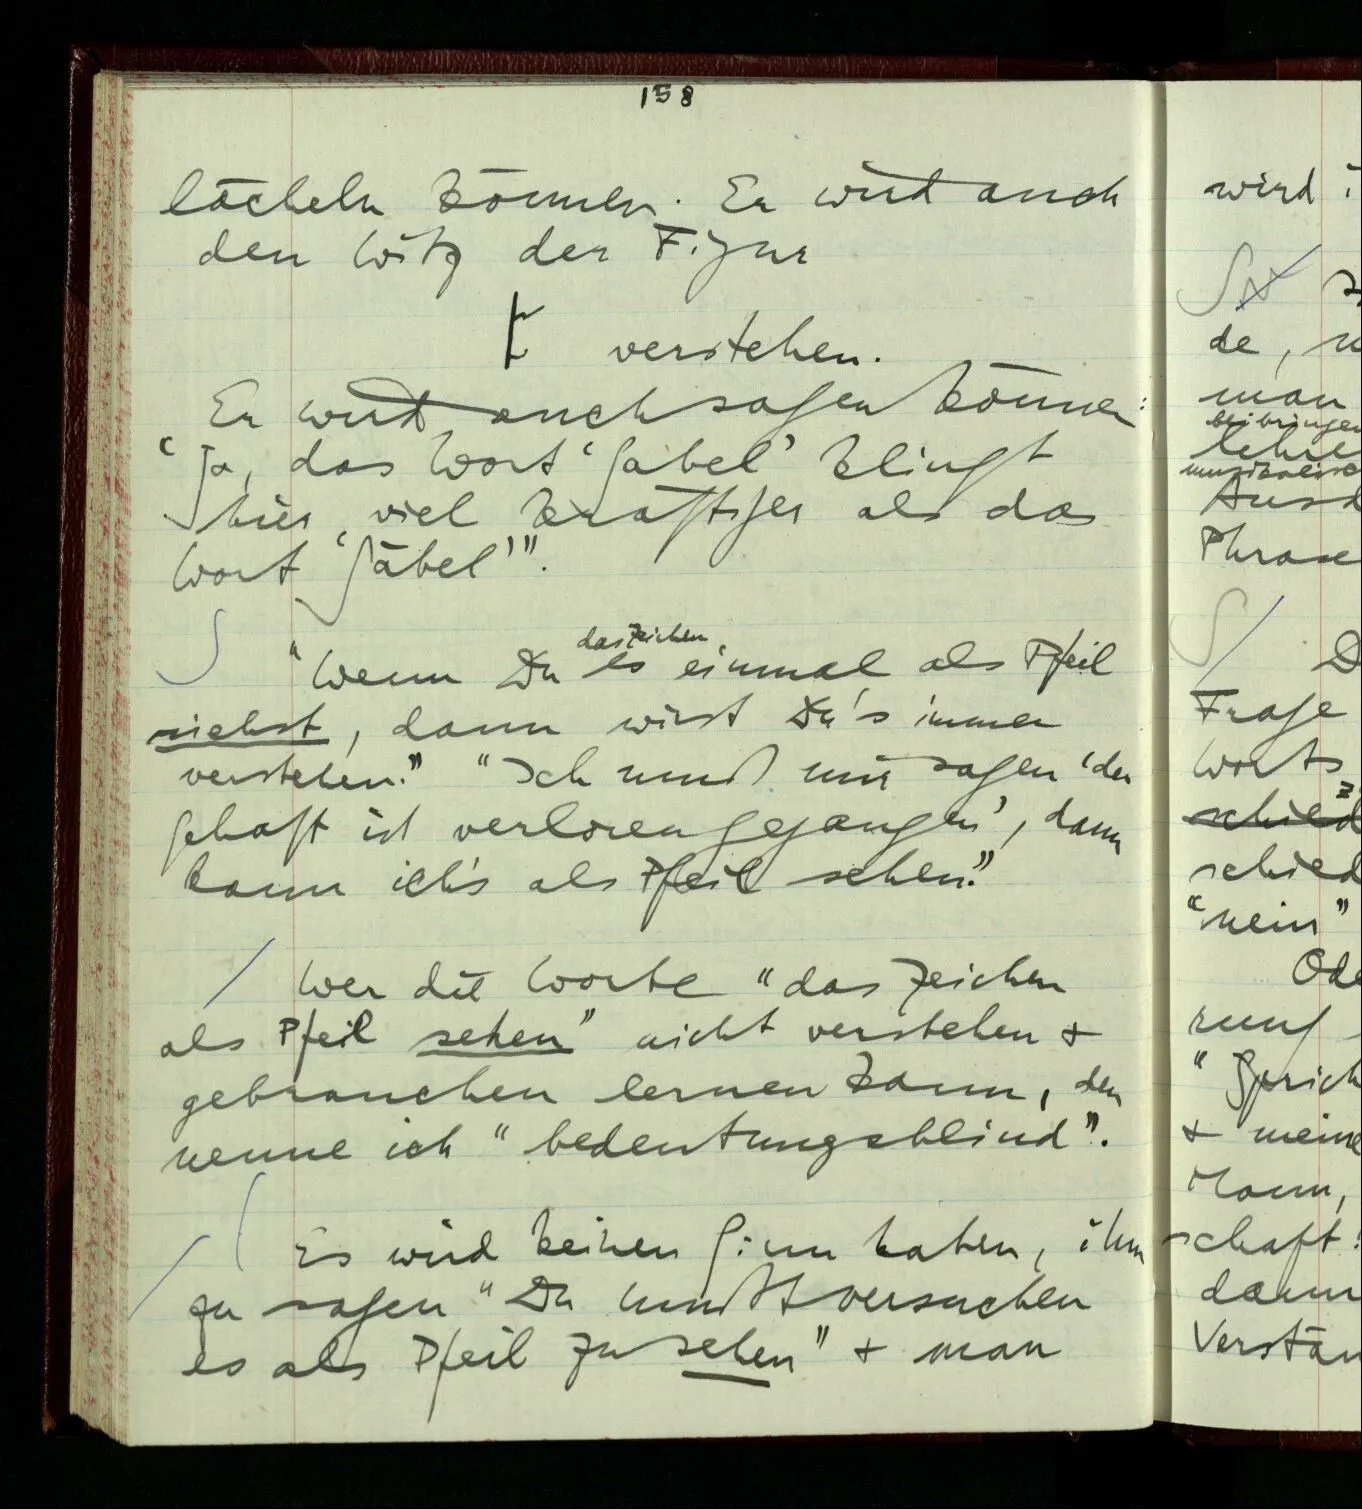 158
lächeln können. Er wird auch
den Witz der Figur
verstehen.
Er wird auch sagen können:
"Ja, das Wort 'Gabel' klingt
hier viel kräftiger als das
Wort 'Säbel'".
S
das Zeichen
"Wenn Du es einmal als Pfeil
siehst, dann wirst Du's immer
verstehen." "Ich muß mir sagen 'der
Schaft ist verloren gegangen', dann
kann ich's als Pfeil sehen."
/ Wer die Worte "das Zeichen
als Pfeil sehen" nicht verstehen +
gebrauchen lernen kann, den
nenne ich "bedeutungsblind".
/ Es wird keinen Sinn haben, ihm
zu sagen "Du mußt versuchen
es als Pfeil zu sehen" + man
wird
S
de,
man
beibringen
lehre
Phrase
S /
Frage
Worts
schied
schied
"nein"
Ode
rung
"Sprich
+ meine
kann,
schaft
dann
Verstän